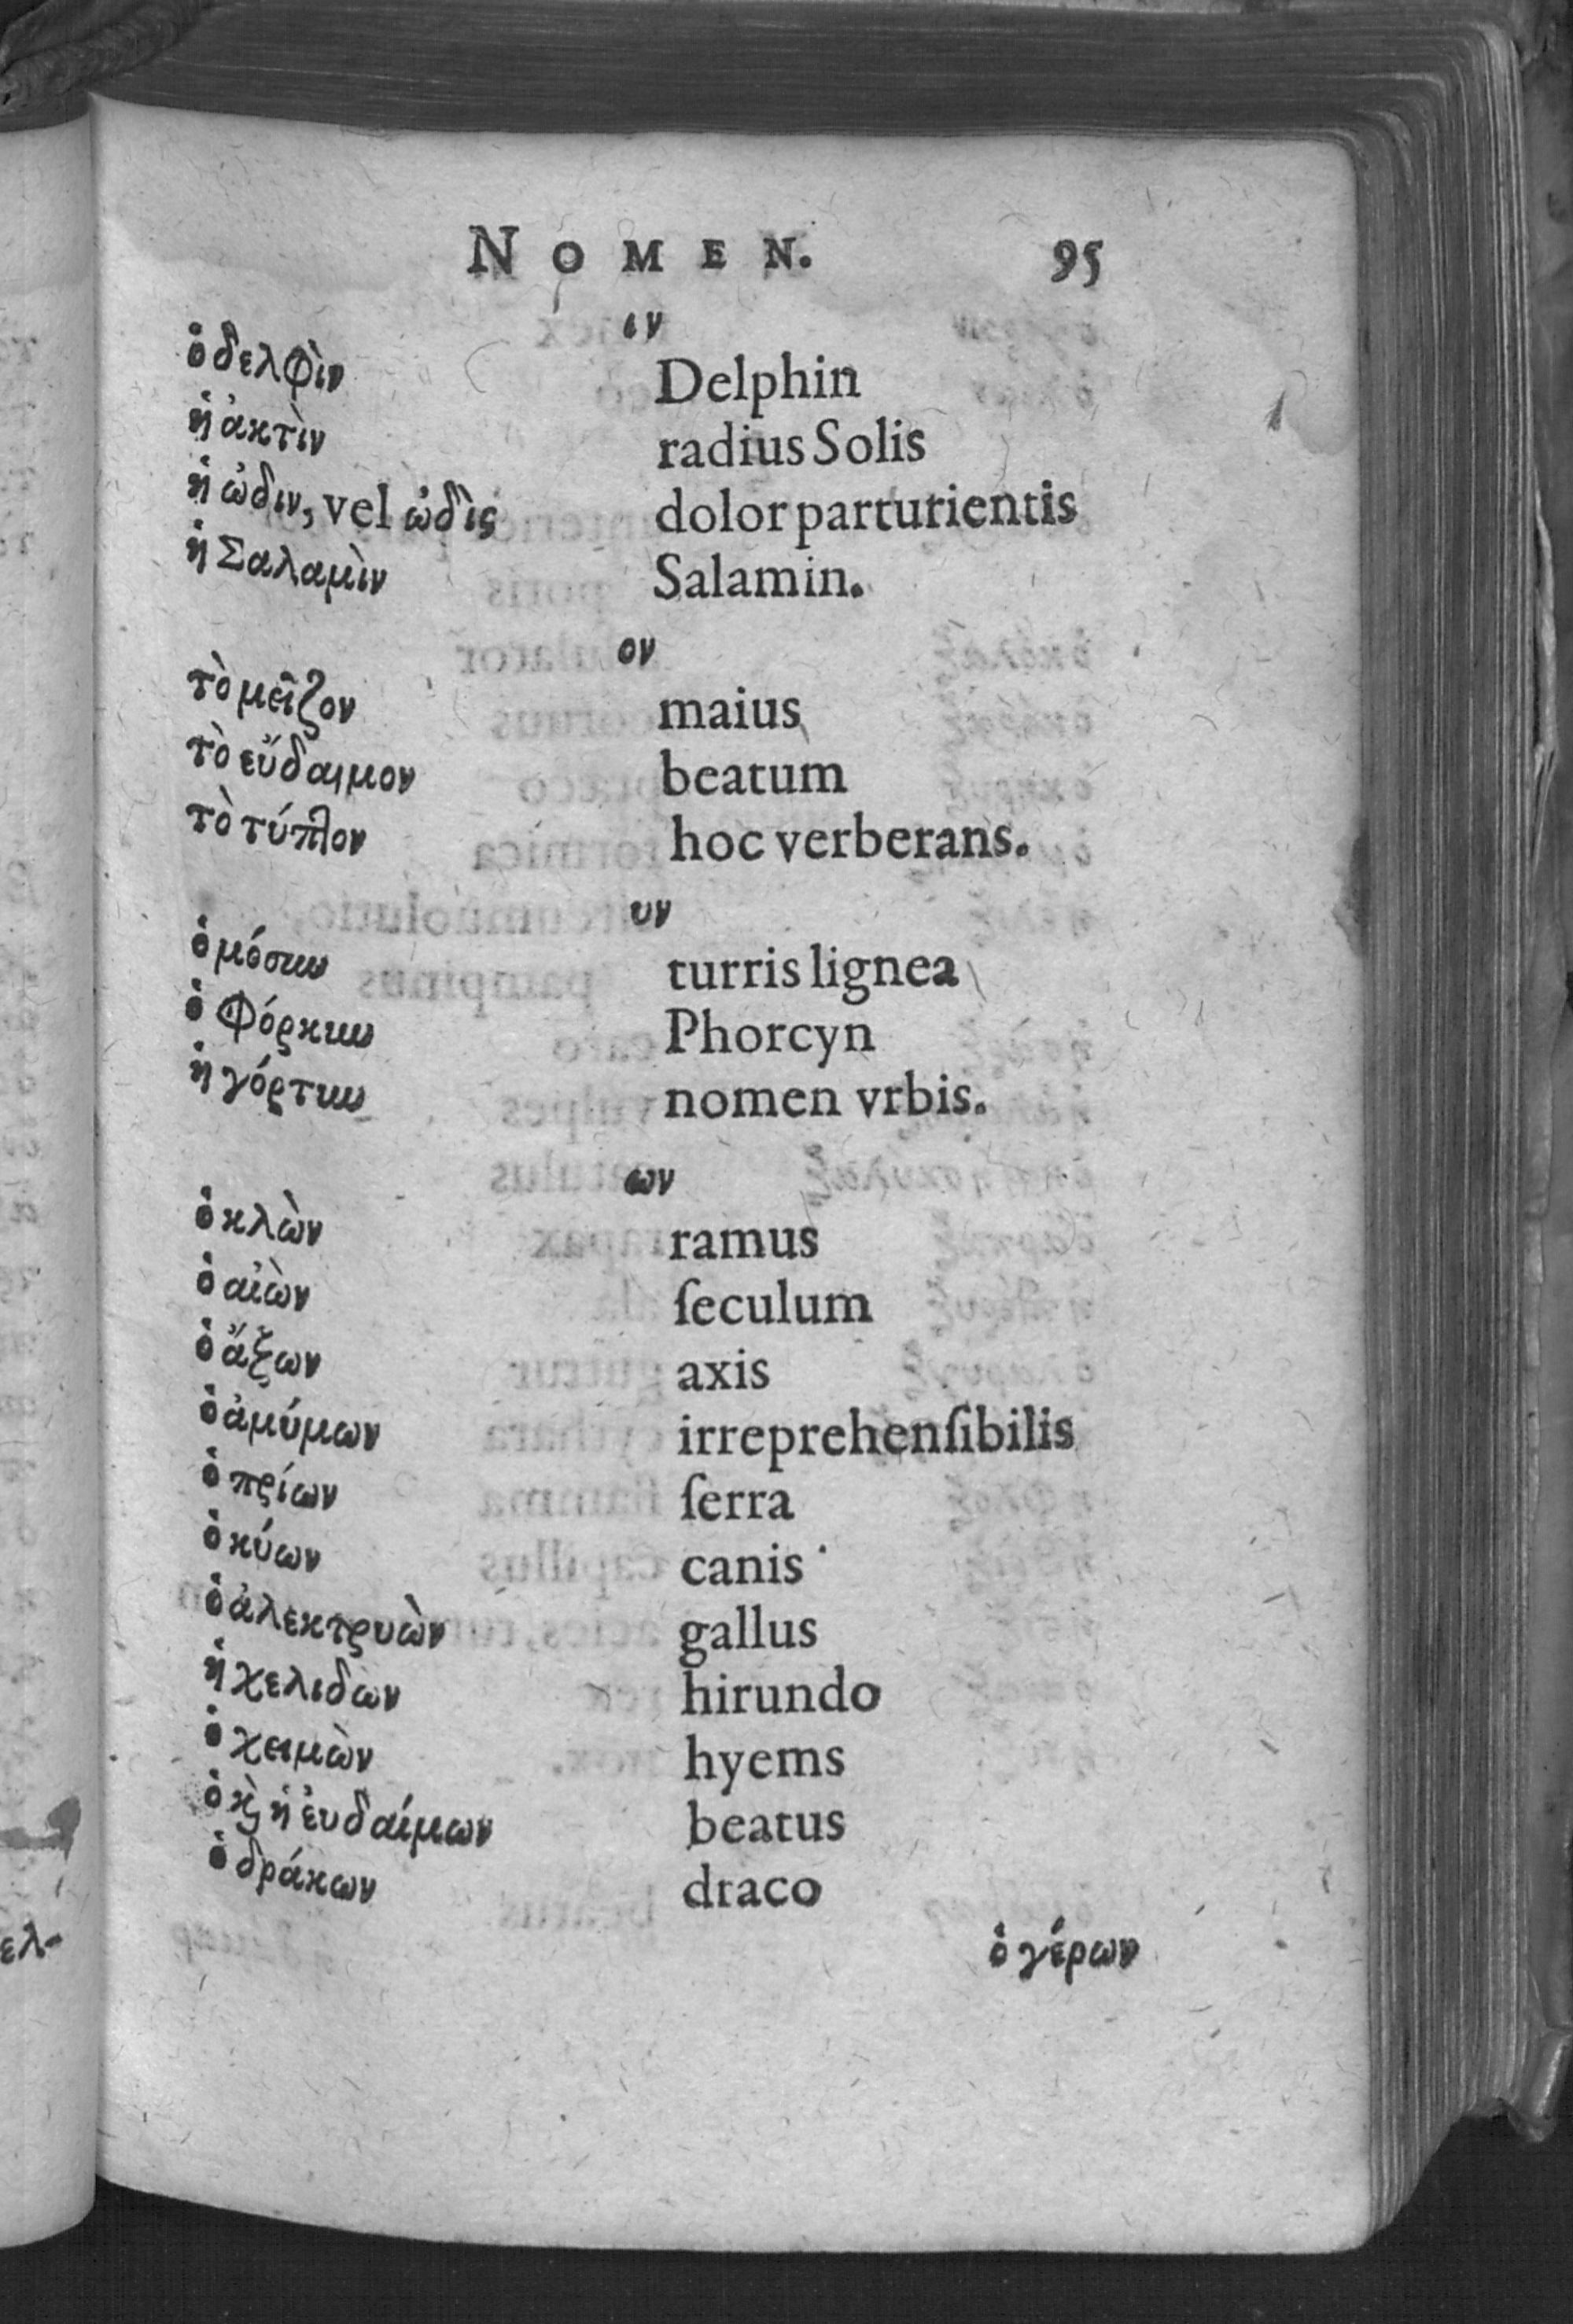 NOMEN. 95
ιν
ὁ δελφὶν Delphin
ἡ ἀκτὶν radius Solis
ἡ ὠδιν, vel ὠδὶς dolor parturientis
ἡ Σαλαμὶν Salamin.
ον
τὸ μεῖζον maius
τὸ εὔδαιμον beatum
τὸ τύπτον hoc verberans.
υν
ὁ μόσυν turris lignea
ὁ Φόρκυν Phorcyn
ἡ γόρτυν nomen vrbis.
ων
ὁ κλὼν ramus
ὁ αἰὼν ſeculum
ὁ ἄξων axis
ὁ ἀμύμων irreprehenſibilis
ὁ πρίων ſerra
ὁ κύων canis
ὁ ἀλεκτρυὼν gallus
ἡ χελιδὼν hirundo
ὁ χειμὼν hyems
ὁ κὶ ἡ ἐυδαίμων beatus
ὁ δράκων draco
ὁ γέρων
ελ-